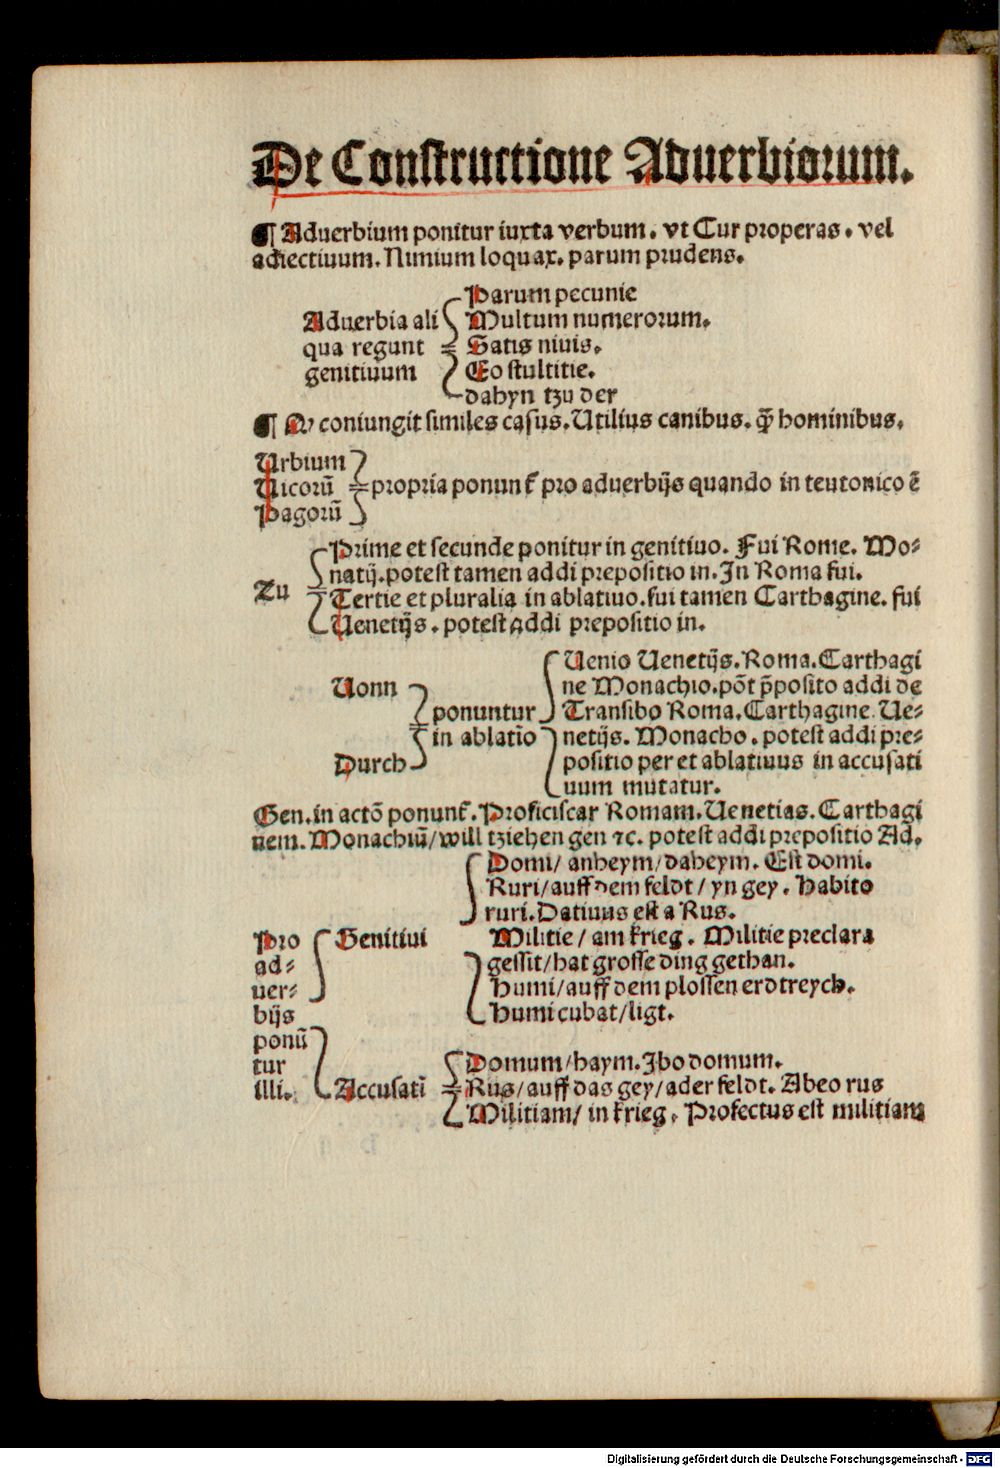 De Constructione Aduerbiorum.
¶ Aduerbium ponitur iuxta verbum. vt Cur properas. vel
adiectiuum. Nimium loquax. parum prudens.
Parum pecunie
Aduerbia ali Multum numerorum.
qua regunt Satis niuis.
genitiuum Eo stultitie.
dahyn tzu der
¶ coniungit similes casus. Utilius canibus. q̃ hominibus.
Urbium
Uicorū propria ponunt᷑ pro aduerbijs quando in teutonico ē
Pagorū
Prime et secunde ponitur in genitiuo. Fui Rome. Mo⸗
natij. potest tamen addi prepositio in. In Roma fui.
Zu Tertie et pluralia in ablatiuo. fui tamen Carthagine. fui
Uenetijs. potest addi prepositio in.
Uenio Uenetijs. Roma. Carthagi
Uonn ne Monachio. põt p̃posito addi de
ponuntur Transibo Roma. Carthagine Ue⸗
in ablatīo netijs. Monacho. potest addi pre⸗
Durch positio per et ablatiuus in accusati
uum mutatur.
Gen. in actõ ponunt᷑. Proficiscar Romam. Uenetias. Carthagi
nem. Monachiū/ will tziehen gen ⁊c. potest addi prepositio Ad.
Domi/ anheym/ daheym. Est domi.
Ruri/ auff dem feldt/ yn gey. Habito
ruri. Datiuus est a Rus.
Pro Genitiui Militie/ am krieg. Militie preclara
ad⸗ gessit/ hat grosse ding gethan.
uer⸗ Humi/ auff dem plossen erdtreych.
bijs Humi cubat/ ligt.
ponū
tur Domum/ haym. Ibo domum.
illi. Accusatī Rus/ auff das gey/ ader feldt. Abeo rus
Militiam/ in krieg. Profectus est militiam
Digitalisierung gefördert durch die Deutsche Forschungsgemeinschaft - DFG